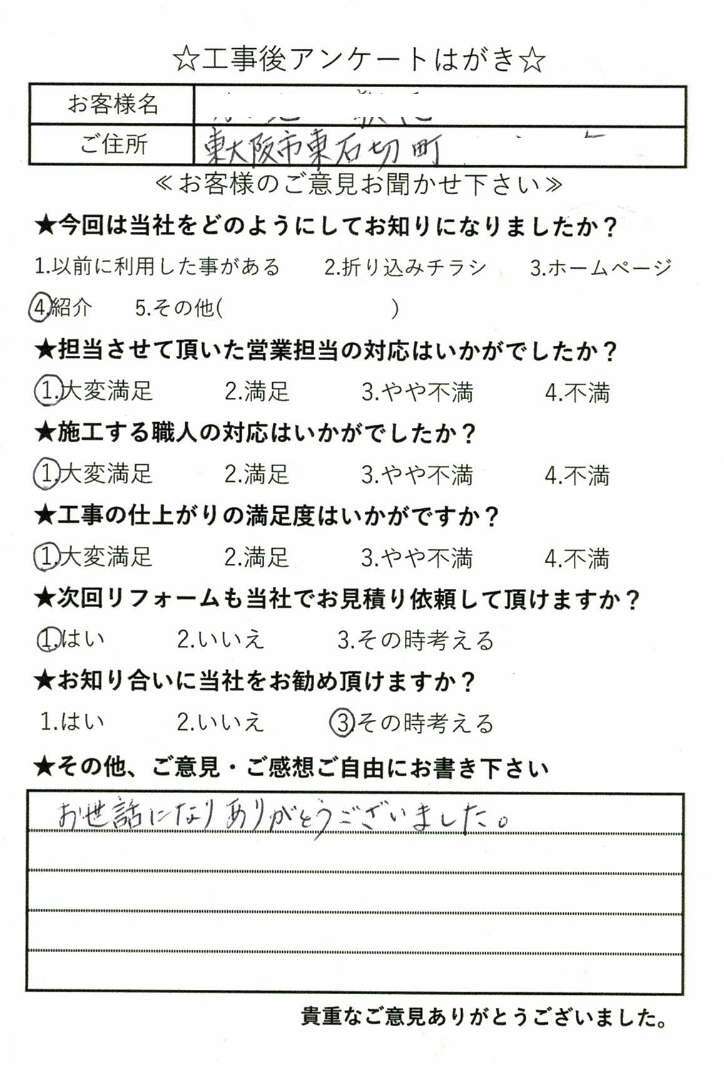 ☆工事後アンケートはがき☆
お客様名
ご住所 東大阪市東石切町
≪お客様のご意見お聞かせ下さい≫
★今回は当社をどのようにしてお知りになりましたか？
1.以前に利用した事がある 2.折り込みチラシ 3.ホームページ
4.紹介 5.その他( )
★担当させて頂いた営業担当の対応はいかがでしたか？
1.大変満足 2.満足 3.やや不満 4.不満
★施工する職人の対応はいかがでしたか？
1.大変満足 2.満足 3.やや不満 4.不満
★工事の仕上がりの満足度はいかがですか？
1.大変満足 2.満足 3.やや不満 4.不満
★次回リフォームも当社でお見積り依頼して頂けますか？
1.はい 2.いいえ 3.その時考える
★お知り合いに当社をお勧め頂けますか？
1.はい 2.いいえ 3.その時考える
★その他、ご意見・ご感想ご自由にお書き下さい
お世話になりありがとうございました。
貴重なご意見ありがとうございました。